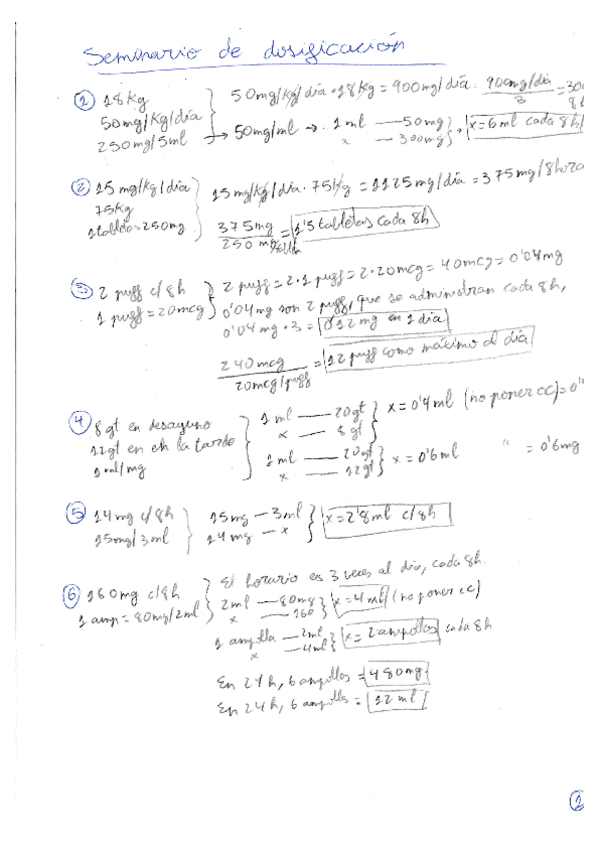 Seminario de dosificación
① 18Kg
50mg/Kg/día
250mg/5ml
50mg/Kg/día · 18Kg = 900mg/día. 900mg/día / 3 = 30
8h
→ 50mg/ml → 1ml — 50mg
x — 300mg
x=6ml cada 8h
② 15mg/Kg/día
75Kg
1tableta=250mg
15mg/Kg/día · 75Kg = 1125mg/día = 375mg/8hora
375mg / 250 mg/ = 1'5 tabletas cada 8h
③ 2 puff c/8h
1 puff=20mcg
2 puff = 2·1 puff = 2·20mcg = 40mcg = 0'04mg
0'04mg son 2 puff, que se administran cada 8h,
0'04mg·3 = 0'12mg en 1 día
240mcg / 20mcg/puff = 12 puff como máximo al día
④ 8gt en desayuno
12gt en la tarde
1ml/mg
1ml — 20gt
x — 8gt
x=0'4ml (no poner cc) = 0'
1ml — 20gt
x — 12gt
x=0'6ml " = 0'6mg
⑤ 14mg c/8h
15mg/3ml
15mg — 3ml
14mg — x
x=2'8ml c/8h
⑥ 160mg c/8h
1 amp = 80mg/2ml
El horario es 3 veces al día, cada 8h.
2ml — 80mg
x — 160
x=4ml (no poner cc)
1 ampolla — 2ml
x — 4ml
x=2ampollas cada 8h
En 24h, 6 ampollas = 480mg
En 24h, 6 ampollas = 12ml